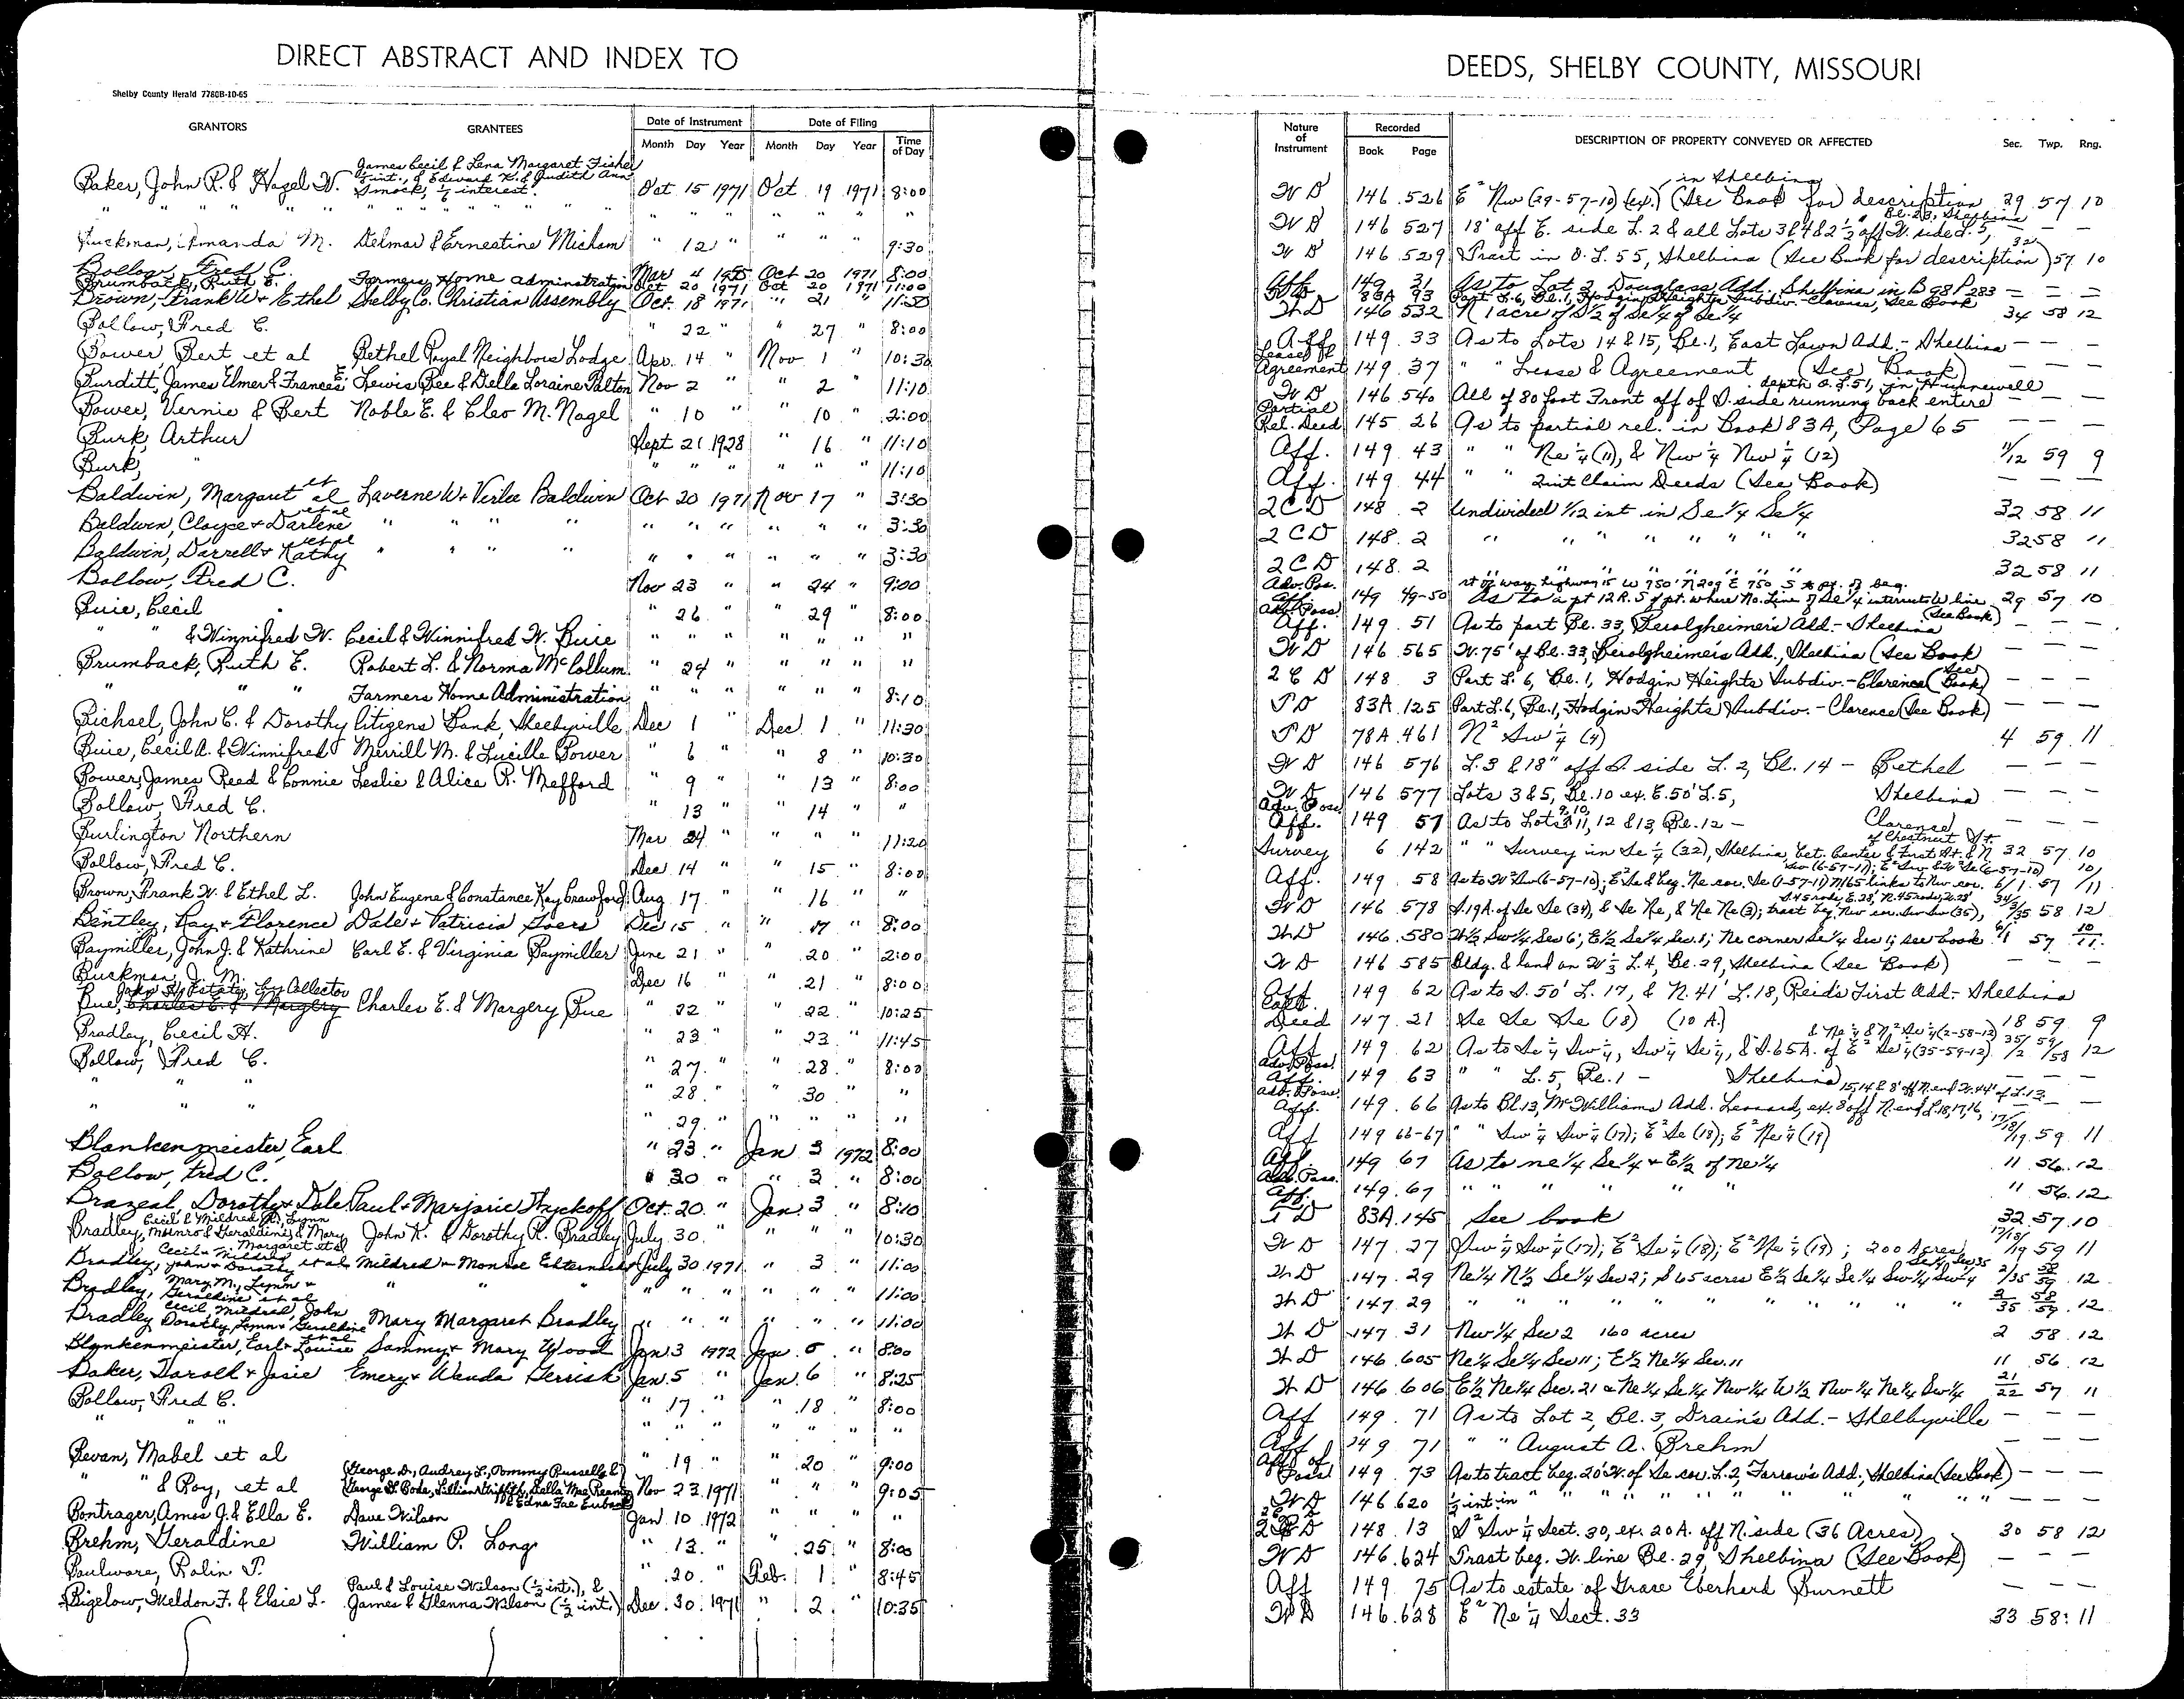 DIRECT ABSTRACT AND INDEX TO
DEEDS, SHELBY COUNTY, MISSOURI
Shelby County Herald 7780B-10-65
GRANTORS GRANTEES Date of Instrument Month Day Year Date of Filing Month Day Year Time of Day
Nature of Instrument Recorded Book Page DESCRIPTION OF PROPERTY CONVEYED OR AFFECTED Sec. Twp. Rng.
James Cecil & Lena Margaret Fisher
½ int., & Edward K. & Judith Ann
Baker, John R. & Hazel W. Smock, ½ interest. Oct 15 1971 Oct 19 1971 8:00
" " " " " " " " " " " "
Buckman, Amanda M. Delmar & Ernestine Micham " 12 " " " " 9:30
Bollow, Fred C. Mar 4 Oct 20 1971 8:00
Brumback, Ruth E. Farmers Home Adminstration Oct 20 1971 Oct 20 1971 11:00
Brown, Frank W + Ethel Shelby Co. Christian Assembly Oct. 18 1971 " 21 " 11:50
Bollow, Fred C. " 22 " " 27 " 8:00
Bower, Bert et al Bethel Royal Neighbors Lodge Apr. 14 " Nov 1 " 10:30
Burditt, James Elmer & Frances E. Lewis Bee & Della Loraine Palton Nov 2 " " 2 " 11:10
Bower, Vernie & Bert Noble E. & Cleo M. Nagel " 10 " " 10 " 2:00
Burk, Arthur Sept 21 1928 " 16 " 11:10
Burk, " " " " " " " 11:10
Baldwin, Margaret et al Laverne W + Verlee Baldwin Oct 20 1971 Nov 17 " 3:30
Baldwin, Cloyce + Darlene et al " " " " " " " " " " 3:30
Baldwin, Darrell + Kathy et al " " " " " " " " " " 3:30
Bollow, Fred C. Nov 23 " " 24 " 9:00
Buie, Cecil " 26 " " 29 " 8:00
" & Winnifred W. Cecil & Winnifred W. Buie " " " " " " "
Brumback, Ruth E. Robert L. & Norma McCollum " 24 " " " " "
" " " Farmers Home Administration " " " " " " 8:10
Bichsel, John C. & Dorothy Citizens Bank, Shelbyville Dec 1 " Dec. 1 " 11:30
Buie, Cecil A. & Winnifred Merrill M. & Lucille Bower " 6 " " 8 " 10:30
Bower, James Reed & Connie Leslie & Alice R. Mefford " 9 " " 13 " 8:00
Bollow, Fred C. " 13 " " 14 " "
Burlington Northern Mar 24 " " " " 11:20
Bollow, Fred C. Dec 14 " " 15 " 8:00
Brown, Frank W. & Ethel L. John Eugene & Constance Kay Crawford Aug 17 " " 16 " "
Bentley, Ray + Florence Dale + Patricia Goers Dec 15 " " 17 " 8:00
Baymiller, John J. & Kathrine Earl E. & Virginia Baymiller June 21 " " 20 " 2:00
Buckman, J. M. Dec 16 " " 21 " 8:00
John H. Estate, by Collector
Bue, Charles E. & Margery Charles E. & Margery Bue " 22 " " 22 " 10:25
Bradley, Cecil H. " 23 " " 23 " 11:45
Bollow, Fred C. " 27 " " 28 " 8:00
" " " " 28 " " 30 " "
" " " " 29 " " " " "
Blankenmeister, Earl " 23 " Jan 3 1972 8:00
Bollow, Fred C. " 30 " " 3 " 8:00
Brazeal, Dorothy + Dale Paul + Marjorie Wyckoff Oct. 20 " Jan. 3 " 8:10
Cecil & Mildred M., Lynn
Bradley, Monro & Geraldine & Mary John K. & Dorothy R. Bradley July 30 " " " " 10:30
Cecil + Mildred Margaret et al
Bradley, John + Dorothy et al Mildred + Monroe July 30 1971 " 3 " 11:00
Mary M., Lynn +
Bradley, Geraldine et al " " " " " " " " " 11:00
Cecil, Mildred, John
Bradley Dorothy, Lynn + Geraldine et al Mary Margaret Bradley " " " " " " 11:00
Blankenmeister, Earl + Louise Sammy + Mary Wood Jan 3 1972 Jan. 5 " 8:00
Baker, Darold + Josie Emery + Wanda Gerrish Jan. 5 " Jan. 6 " 8:25
Bollow, Fred C. " 17 " " 18 " 8:00
" " " " " " " " " "
Bevan, Mabel et al " 19 " " 20 " 9:00
(George D., Audrey L., Tommy Russell &
" " & Roy, et al George W. Boke, Lillian Griffith, Della Mae & Edna Fae Eubank) Nov 23 1971 " " " 9:05
Bontrager, Amos J. & Ella E. Dave Wilson Jan. 10 1972 " " " "
Brehm, Geraldine William P. Long " 13 " " 25 " 8:00
Baulware, Rolin T. " 20 " Feb. 1 " 8:45
Paul & Louise Wilson (½ int.), &
Bigelow, Weldon F. & Elsie L. James & Glenna Wilson (½ int.) Dec. 30 1971 " 2 " 10:35
in Shelbina
W D 146 526 E² Nw (29-57-10) (ex.) (See Book for description 29 57 10
Bl. 23, Shelbina
W D 146 527 18' aff E. side L. 2 & all Lots 3 & 4 & 2½ off W. side L. 5, — —
W D 146 529 Tract in O. L. 55, Shelbina (See Book for description) 32 57 10
Aff. 149 31 As to Lot 2, Douglass Add. Shelbina in B 98 P 283 — — —
83A 93 Part L. 6, Bl. 1, Hodgin Heights Subdiv. - Clarence, See Book
W D 146 532 N 1 acre of S½ of Se¼ of Se¼ 34 58 12
Aff 149 33 As to Lots 14 & 15, Bl. 1, East Lawn Add. - Shelbina — — —
Lease & Agreement 149 37 " " Lease & Agreement (See Book) — — —
depth O. L. 51, in Hunnewell
W D 146 540 All of 80 foot Front off of S. side running back entire — — —
Partial Rel. Deed 145 26 As to partial rel. in Book 83A, Page 65 — — —
Aff. 149 43 " " Ne ¼ (11), & Nw ¼ Nw ¼ (12) 11/12 59 9
Aff. 149 44 " " 2uit Claim Deeds (See Book) — — —
2 C D 148 2 Undivided 1/12 int in Se ¼ Se ¼ 32 58 11
2 C D 148 2 " " " " " " " 32 58 11
2 C D 148 2 " " " " " 32 58 11
rt of way highway 15 W 750' N 209 E 750 S to pt. of beg.
Adv. Pos. Aff. 149 49-50 As to a pt 12 R. S of pt. where No. Line of Se ¼ intersects W line 29 57 10
(See Book)
Adv. Poss. Aff. 149 51 As to part Bl. 33, Berolzheimer's Add. - Shelbina — — —
W D 146 565 W. 75' of Bl. 33, Berolzheimer's Add., Shelbina (See Book — — —
2 C D 148 3 Part L. 6, Bl. 1, Hodgin Heights Subdiv. - Clarence (See Book) — — —
T D 83A 125 Part L. 6, Bl. 1, Hodgin Heights Subdiv. - Clarence (See Book) — — —
T D 78A 461 N² Sw ¼ (4) 4 59 11
W D 146 576 L. 3 & 18" off S. side L. 2, Bl. 14 - Bethel — — —
W D 146 577 Lots 3 & 5, Bl. 10 ex. E. 50' L. 5, Shelbina — — —
Adv. Poss. Aff. 149 57 As to Lots 9, 10, 11, 12 & 13, Bl. 12 - Clarence — — —
of Chestnut St.
Survey 6 142 " " Survey in Se ¼ (32), Shelbina, bet. Center & First St. & N 32 57 10
Aff. 149 58 As to W² Sw (6-57-10); E² Se & beg. Ne cor. Se (1-57-11) N 165 links to Nw cor. 6/1 57 10/11
W D 146 578 S. 19 A. of Se Se (34), & Se Ne, & Ne Ne (3); tract beg. Nw cor. Sw Sw (35), 34/3/35 58 12
W D 146 580 W½ Sw ¼ Sec 6; E½ Se ¼ Sec. 1; Ne corner Se ¼ Sec 1; see book 6/1 57 10/11
W D 146 585 Bldg. & land on W ⅓ L. 4, Bl. 29, Shelbina (See Book) — — —
Aff 149 62 As to S. 50' L. 17, & N. 41' L. 18, Reid's First Add. - Shelbina
Coll. Deed 147 21 Se Se Se (18) (10 A.) 18 59 9
& Ne ¼ & N² Se ¼ (2-58-12)
Aff 149 62 As to Se ¼ Sw ¼, Sw ¼ Se ¼, & S. 65 A. of E² Se ¼ (35-59-12) 35/2 59/58 12
Adv. Poss. Aff. 149 63 " " L. 5, Bl. 1 - Shelbina — — —
15, 14 & 8' off N. end W. 44' of L. 13
Adv. Poss. Aff. 149 66 As to Bl. 13, McWilliams Add. Leonard, ex. 8 off N. end L. 18, 17, 16, — —
Aff 149 66-67 " " Sw ¼ Sw ¼ (17); E² Se (18); E² Ne ¼ (19) 17/18/19 59 11
Aff 149 67 As to ne ¼ Se ¼ + E½ of Ne ¼ 11 56 12
Adv. Poss. Aff. 149 67 " " " " " " 11 56 12
T D 83A 145 See book 32 57 10
W D 147 27 Sw ¼ Sw ¼ (17); E² Se ¼ (18); E² Ne ¼ (19); 200 Acres 17/18/19 59 11
W D 147 29 Ne ¼ N½ Se ¼ Sec 2; S 65 acres E½ Se ¼ Se ¼ Sw ¼ Sw ¼ Se ¼ Sec 35 2/35 58/59 12
W D 147 29 " " " " " " " " " " 2/35 58/59 12
W D 147 31 Nw ¼ Sec 2 160 acres 2 58 12
W D 146 605 Ne ¼ Se ¼ Sec 11; E½ Ne ¼ Sec. 11 11 56 12
W D 146 606 E½ Ne ¼ Sec. 21 & Ne ¼ Se ¼ Nw ¼ W½ Nw ¼ Ne ¼ Sw ¼ 21/22 57 11
Aff 149 71 As to Lot 2, Bl. 3, Drain's Add. - Shelbyville — — —
Aff 149 71 " " August A. Brehm — — —
Aff of Poss. 149 73 As to tract beg. 20' W. of Se cor. L. 2, Farrow's Add., Shelbina (See Book) — — —
W D 146 620 ½ int in " " " " " " " " " " — — —
2 C D 148 13 S² Sw ¼ Sect. 30, ex. 20 A. off N. side (36 Acres) 30 58 12
W D 146 624 Tract beg. W. line Bl. 29, Shelbina (See Book) — — —
Aff 149 75 As to estate of Grace Eberhard Burnett — — —
W D 146 628 E² Ne ¼ Sect. 33 33 58 11